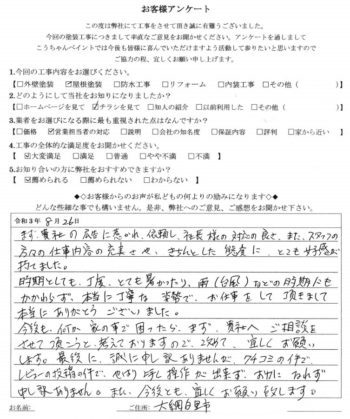 お客様アンケート
この度は弊社にて工事をさせて頂き誠に有難うございました。
今回の塗装工事につきまして率直なご意見をお聞かせください。アンケートを通しまして
こうちゃんペイントでは今後も皆様に喜んでいただけますよう活動して参りたいと思いますので
ご協力の程、宜しくお願い申し上げます。
1.今回の工事内容をお選びください。
□外壁塗装 ☑屋根塗装 □防水工事 □リフォーム □内装工事 □その他( )
2.どのようにして当社をお知りになりましたか?
□ホームページを見て ☑チラシを見て □知人の紹介 □以前利用した □その他( )
3.業者をお選びになる際に最も重視された点はなんですか?
□価格 ☑営業担当者の対応 □説明 □会社の知名度 □保証内容 □評判 □家から近い
4.工事の全体的な満足度をお聞かせください。
☑大変満足 □満足 □普通 □やや不満 □不満
5.お知り合いの方に弊社をおすすめできますか?
☑薦められる □薦められない □わからない
◇◆お客様からのお声が私どもの何よりの励みになります◇◆
どんな些細な事でも構いません、是非、弊社へのご意見、ご感想をお聞かせ下さい。
令和3年 8月 26日
まず、貴社の広告に惹かれ、依頼し、社長様の対応の良さ、また、スタッフの
方々の仕事内容の充実さや、きちんとした態度に、とても好感が
持てました。
時期としても、丁度、とても暑かったり、雨(台風)などの時期にも
かかわらず、本当に丁寧な姿勢で、お仕事をして頂きまして
本当にありがとうございました。
今後も、何か家の事で困ったら、まず、貴社へご相談を
させて頂こうと、考えておりますので、改めて、宜しくお願い
します。最後に、誠に申し訳ありませんが、クチコミの件で
レビューの投稿の件で、やはり上手く操作が出来ず、お力になれず
申し訳ありません。また、今後とも、宜しくお願い致します。
お名前: ご住所: 大網白里市